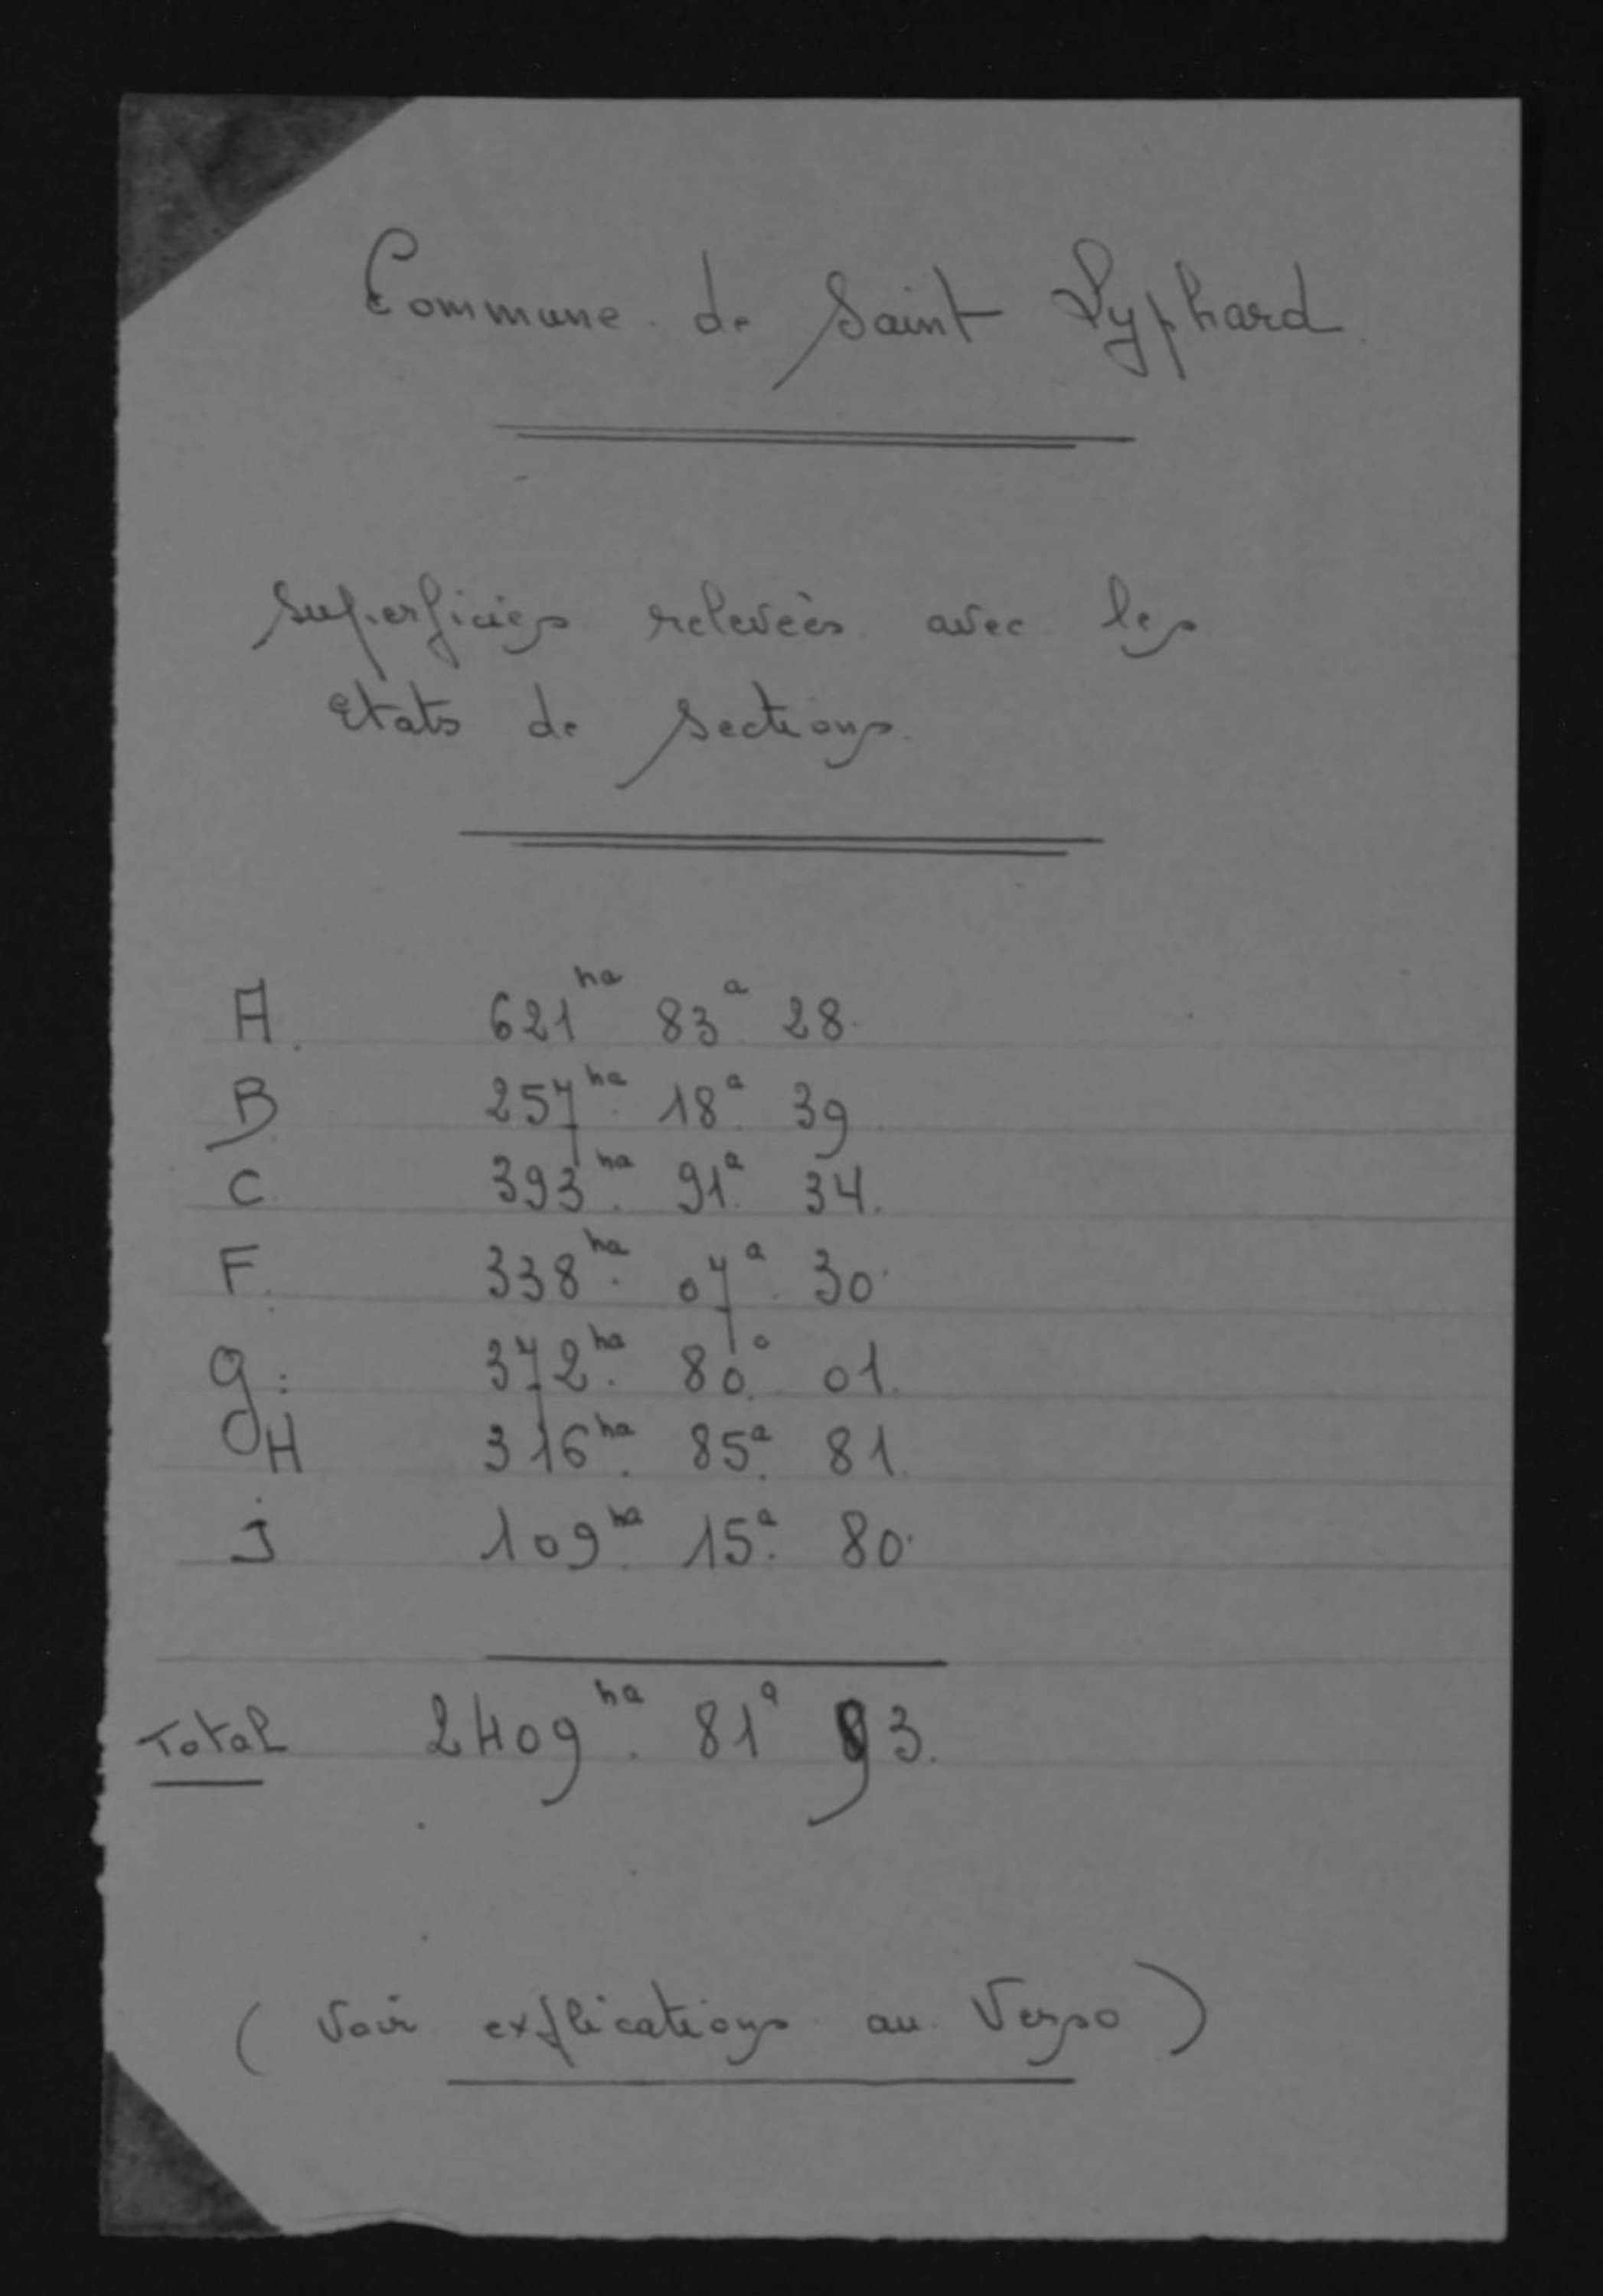 Commune de Saint Lyphard
Superficies relevées avec les
Etats de Sections.
A. 621ha 83a 28.
B 257ha 18a 39
C 393ha 91a 34.
F. 338ha 07a 30.
G. 372ha 80a 01.
H 316ha 85a 81.
J 109ha 15a 80.
Total 2409ha 81a 93.
( Voir explications au Verso )